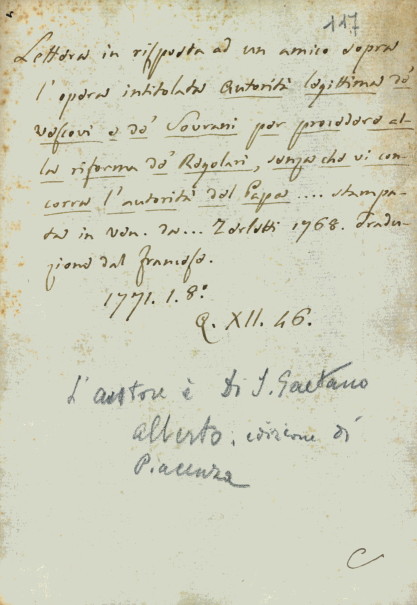 117
Lettera in risposta ad un amico sopra
l'opera intitolata Autorità legittima de'
vescovi e de' Sovrani per procedere al-
la riforma de' Regolari, senza che vi con-
corra l'autorità del Papa .... stampa-
ta in ven. da... Zerletti 1768. Tradu-
zione dal francese.
1771. 1. 8.º
Q. XII. 46.
L'autore è Di S. Gaetano
Alberto, edizione di
Piacenza
C